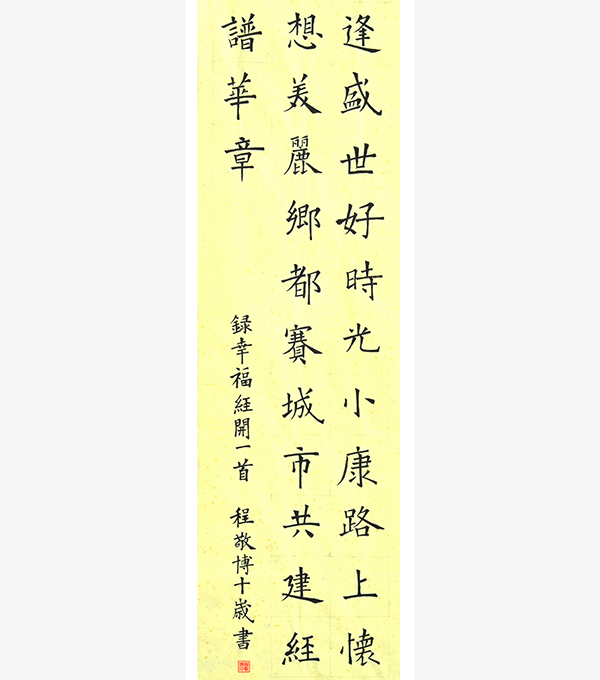 逢盛世好時光小康路上懷
想美麗鄉都賽城市共建經
譜華章
録幸福經開一首 程敬博十歲書